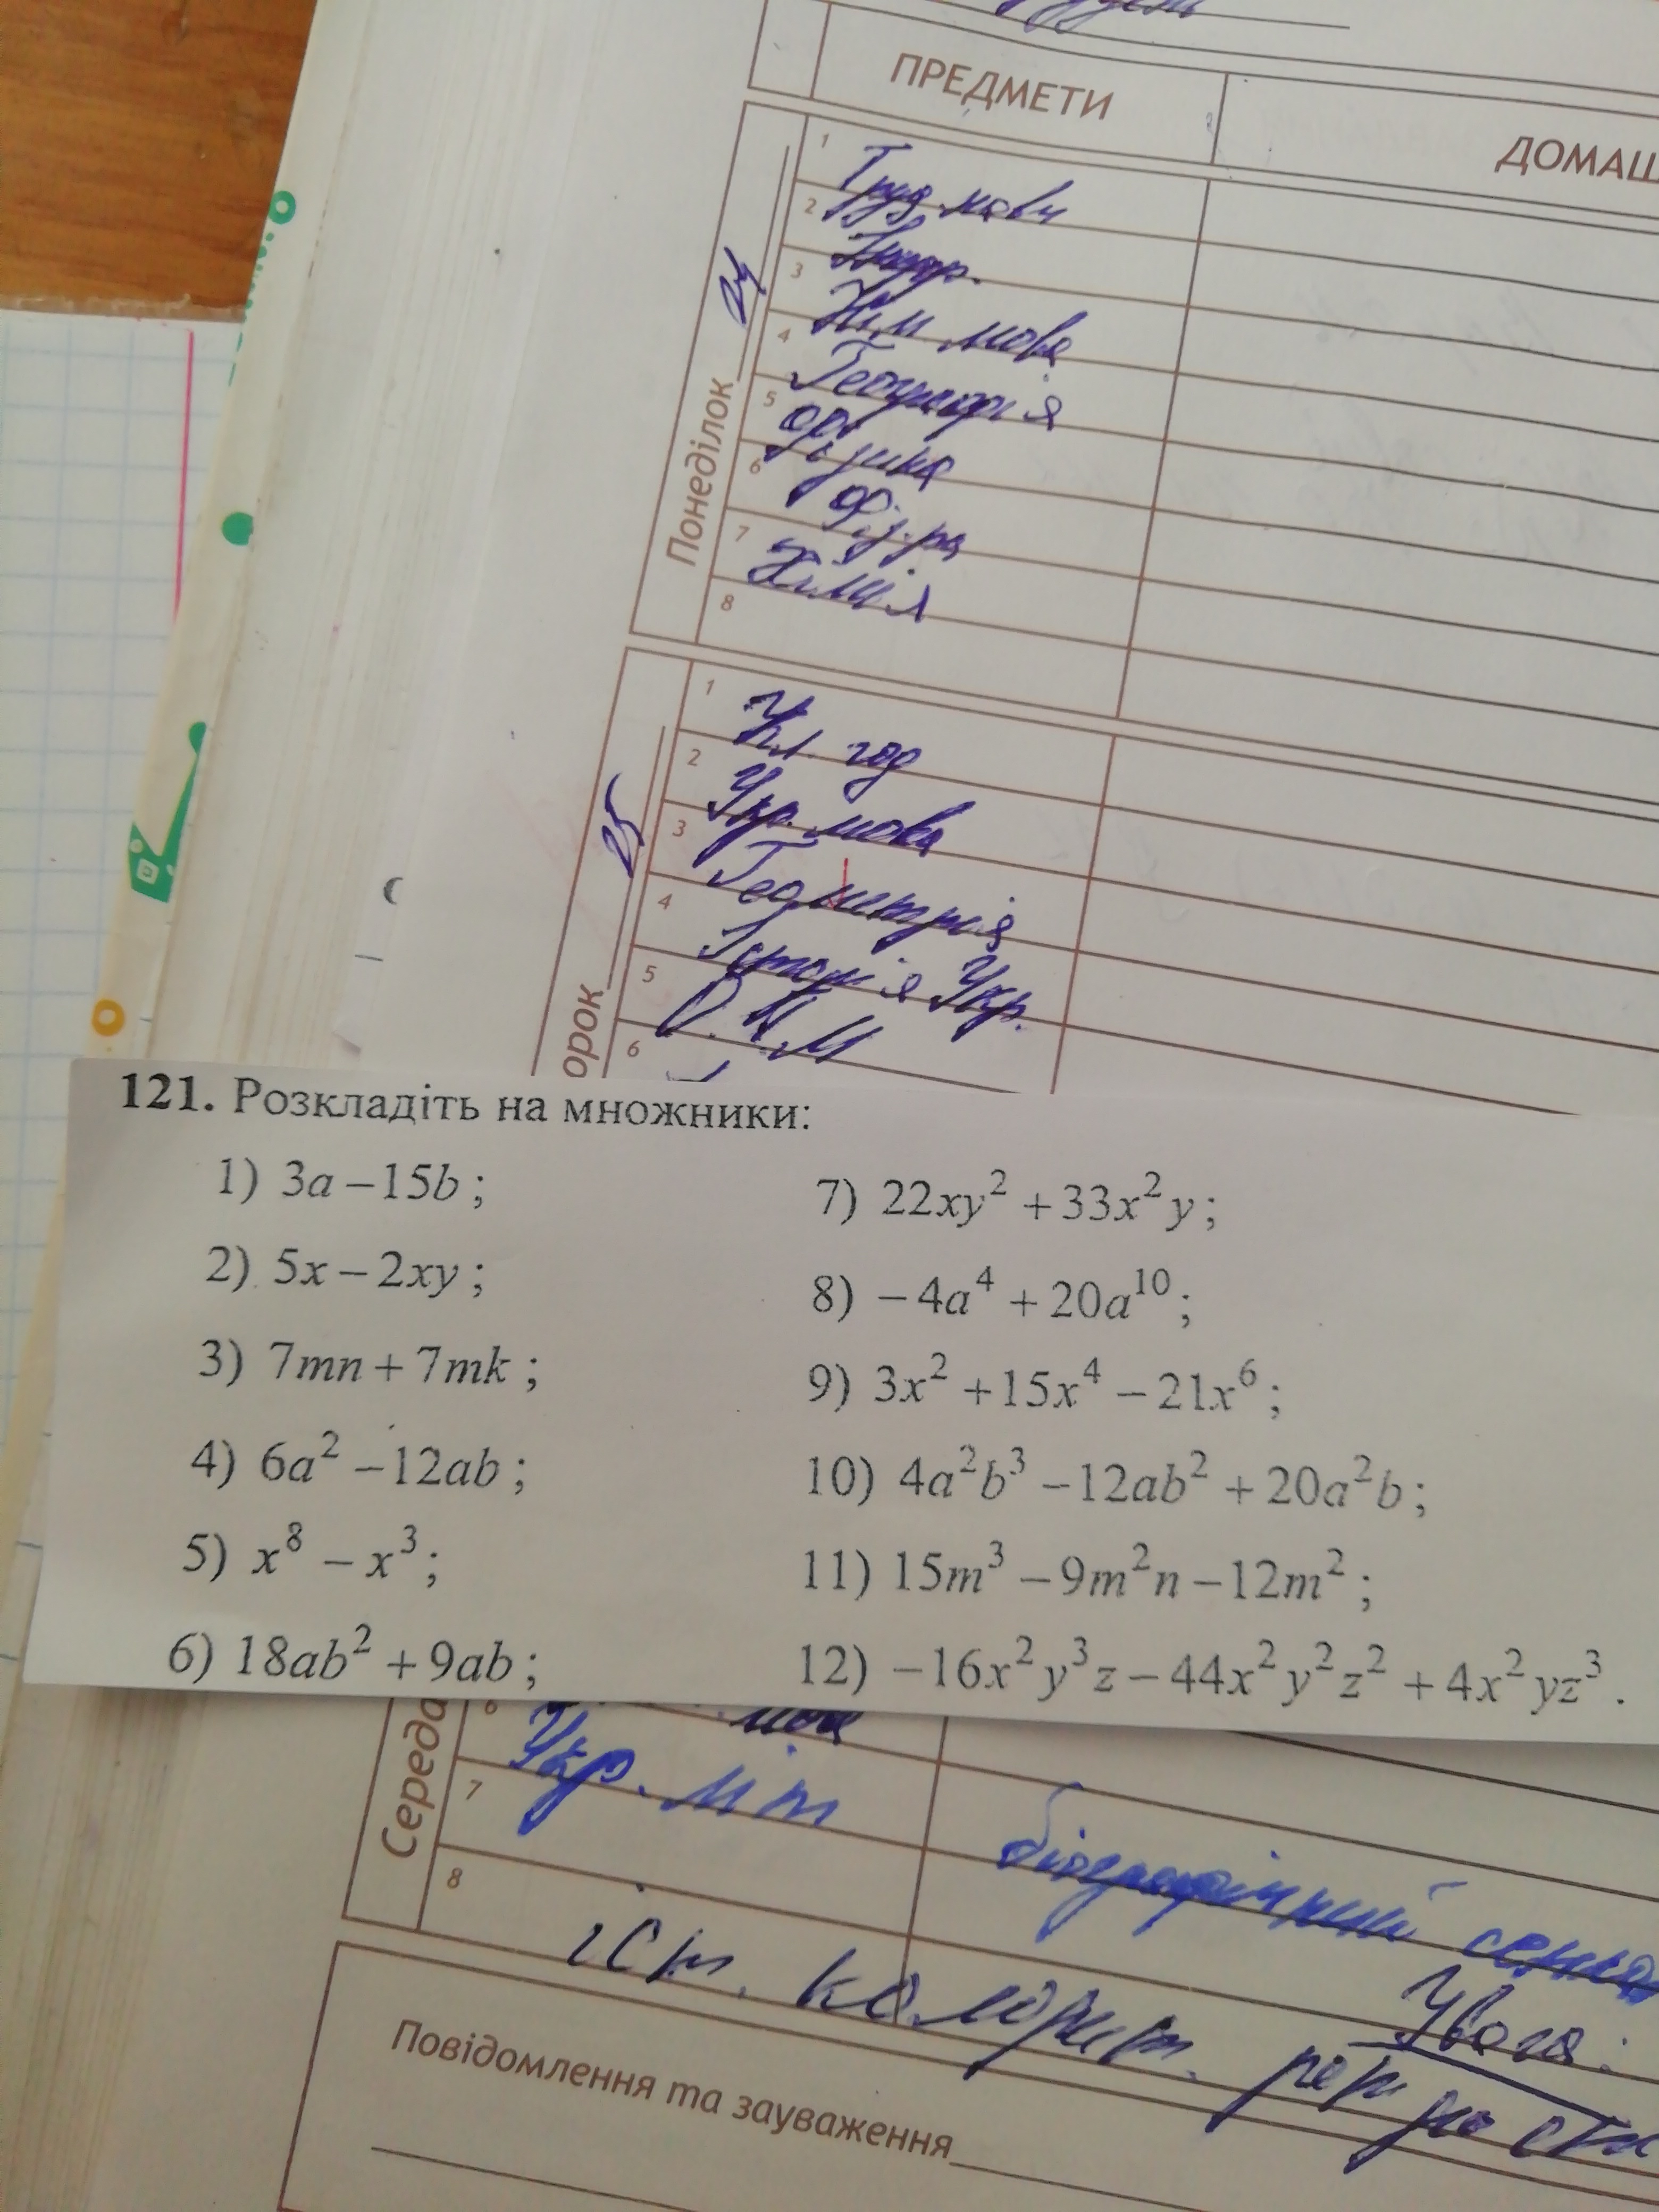 ПРЕДМЕТИ
ДОМАШ
Понеділок 24
1 Труд. навч
2 Інфор.
3 Нім мова
4 Географія
5 Фізика
6 Фіз-ра
7 Хімія
8
орок 25
1 Кл. год
2 Укр. мова
3 Геометрія
4 Історія Укр.
5
6
121. Розкладіть на множники:
1) 3a – 15b ;
2) 5x – 2xy ;
3) 7mn + 7mk ;
4) 6a² – 12ab ;
5) x⁸ – x³ ;
6) 18ab² + 9ab ;
7) 22xy² + 33x²y ;
8) – 4a⁴ + 20a¹⁰ ;
9) 3x² + 15x⁴ – 21x⁶ ;
10) 4a²b³ – 12ab² + 20a²b ;
11) 15m³ – 9m²n – 12m² ;
12) –16x²y³z – 44x²y²z² + 4x²yz³ .
Середа
6 мова
7 Укр. літ
8
іст. колорит.
Увага:
Повідомлення та зауваження